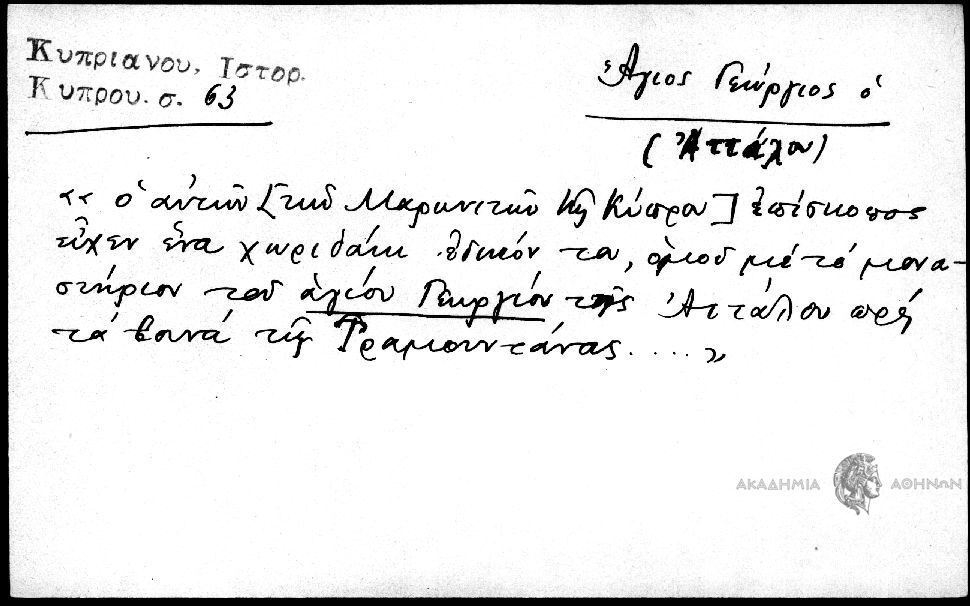 Κυπριανου, Ιστορ.
Κυπρου. σ. 63
Ἅγιος Γεώργιος ὁ
(Ἀττάλου)
«ὁ αὐτῶν [τῶν Μαρωνιτῶν τῆς Κύπρου] ἐπίσκοπος
εἶχεν ἕνα χωριδάκι ἐδικόν του, ὁμοῦ μὲ τὸ μονα-
στήριον τοῦ ἁγίου Γεωργίου τῆς Ἀττάλου πρὸς
τὰ βουνά τῆς Τραμουντάνας....»
ΑΚΑΔΗΜΙΑ ΑΘΗΝΩΝ